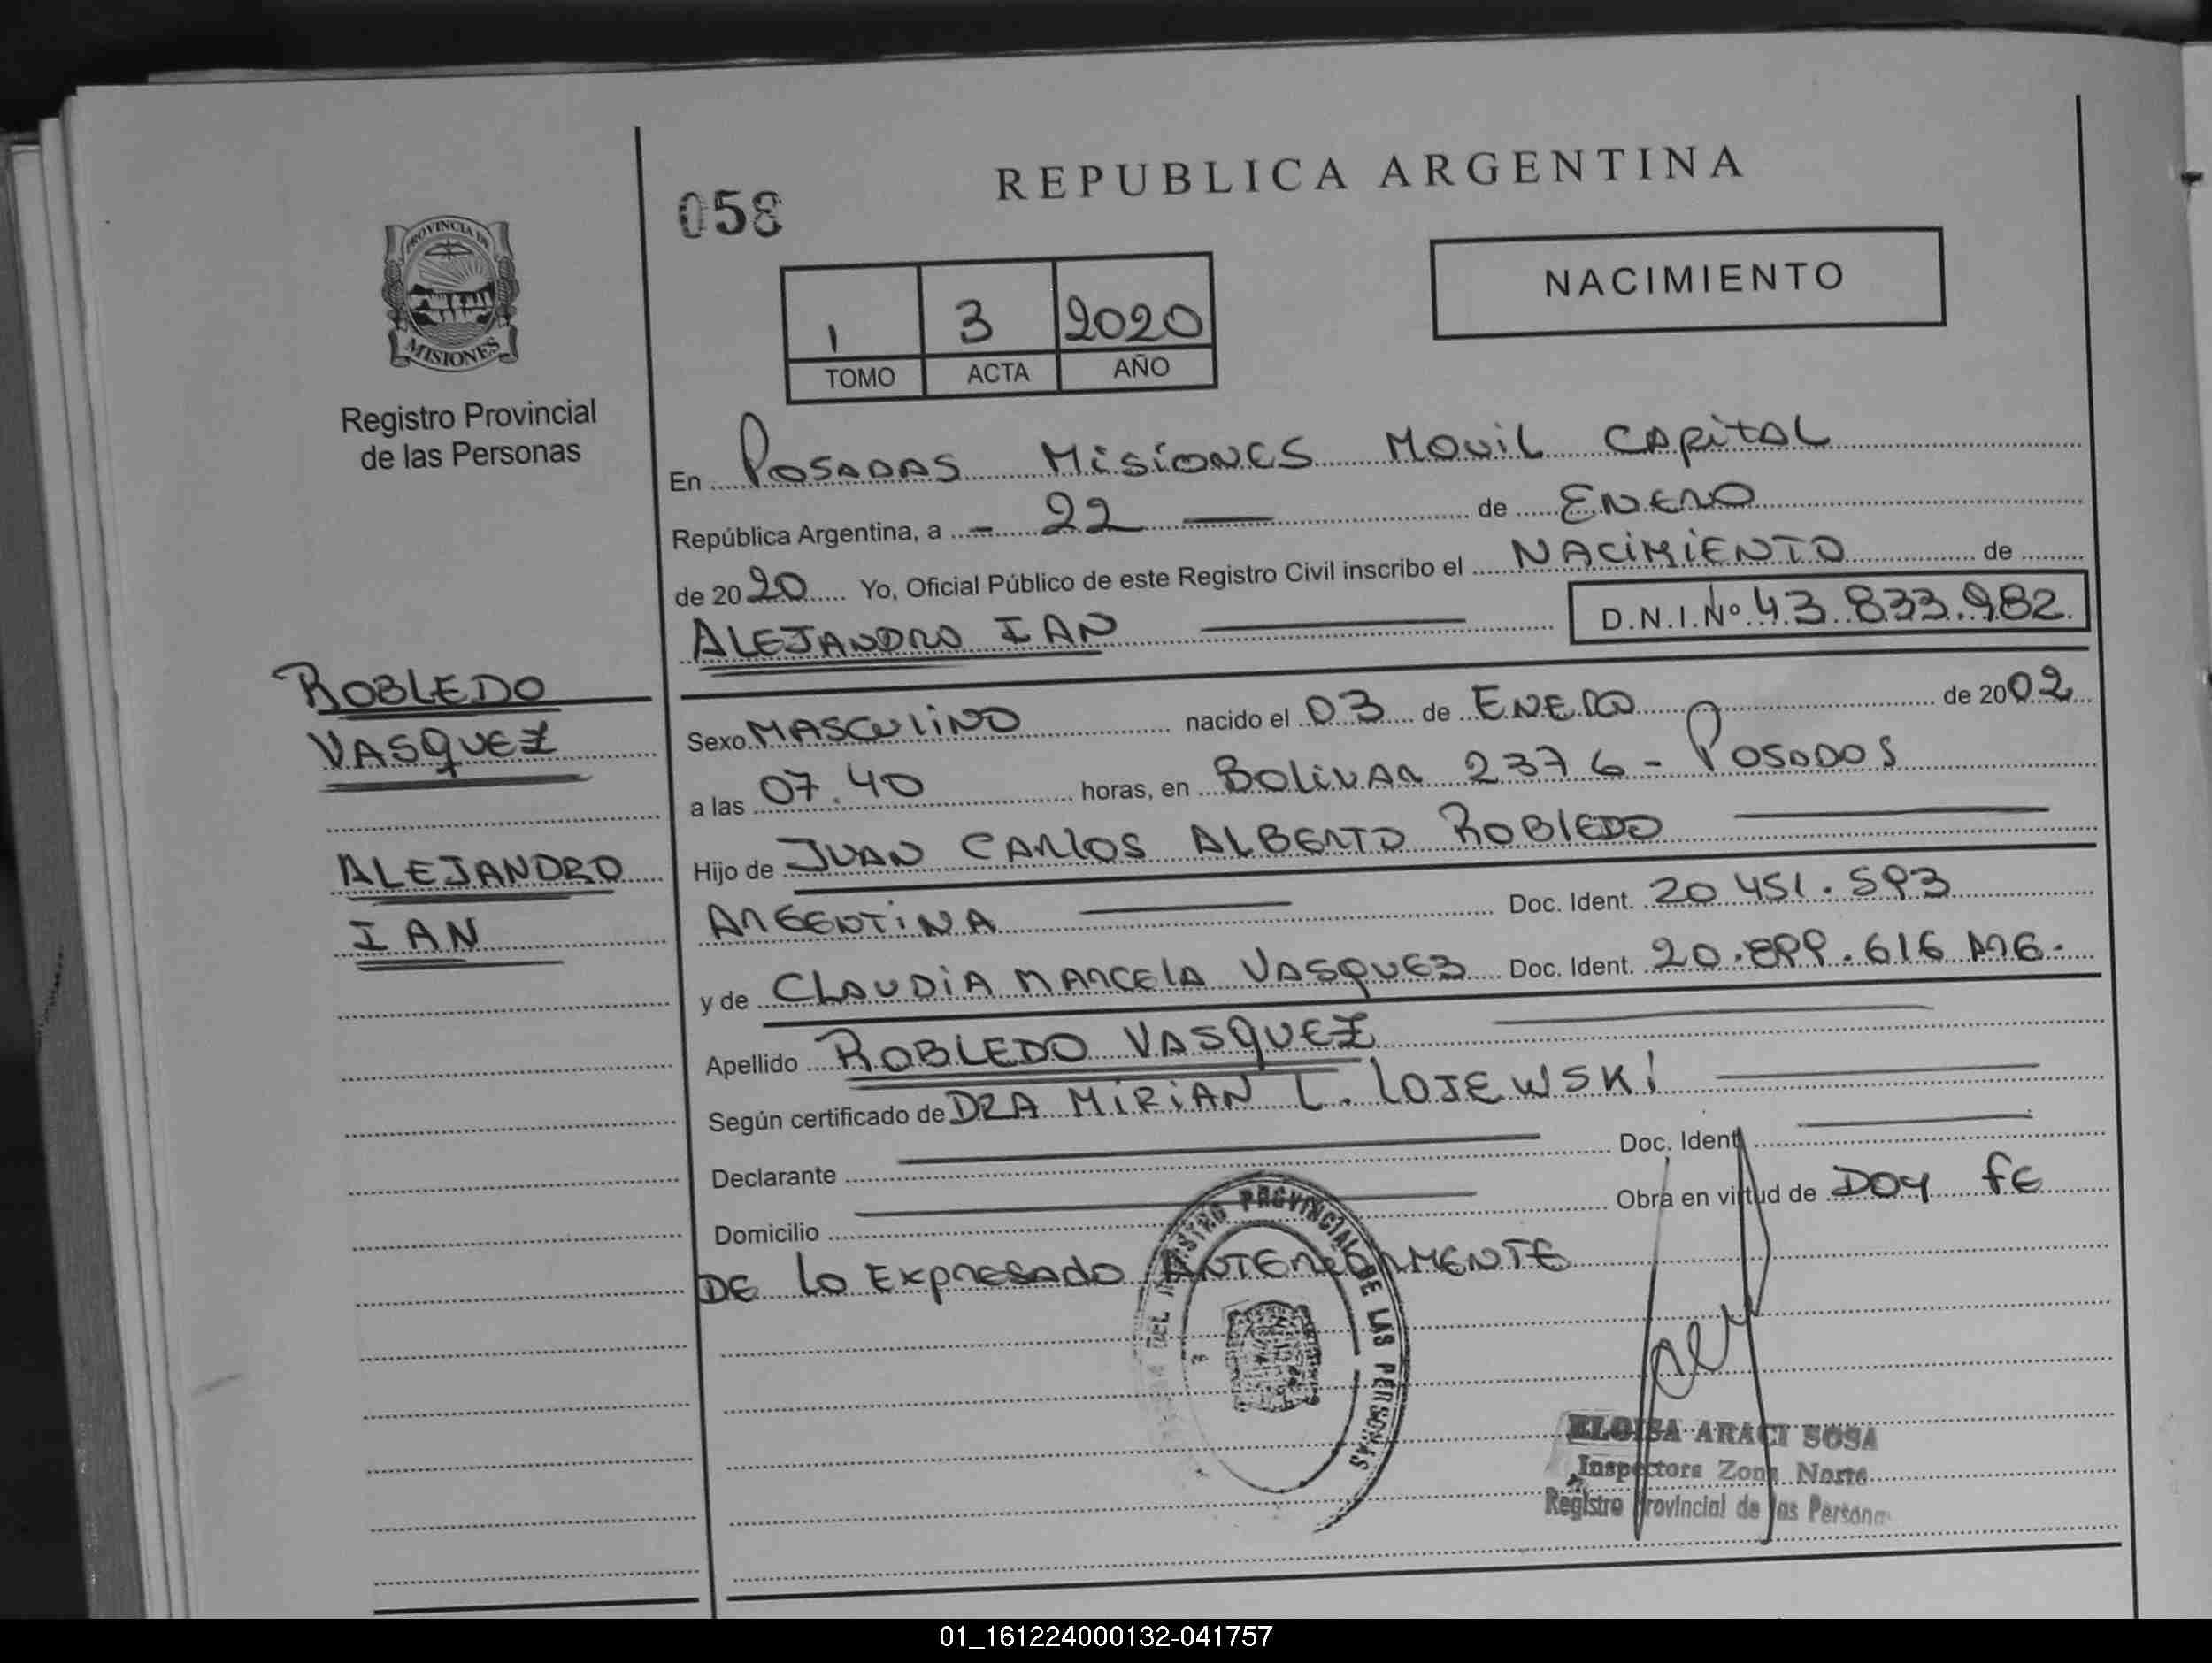 REPUBLICA ARGENTINA
058
NACIMIENTO
PROVINCIA DE
MISIONES
1 3 2020
TOMO ACTA AÑO
Registro Provincial
de las Personas
En Posadas Misiones Movil Capital
República Argentina, a - 22 — de Enero
de 2020 Yo, Oficial Público de este Registro Civil inscribo el NACIMIENTO de
ALEJANDRO IAN D.N.I.Nº 43.833.982
ROBLEDO
VASQUEZ
ALEJANDRO
IAN
Sexo MASCULINO nacido el 03 de ENERO de 2002
a las 07.40 horas, en Bolivar 2376 - Posadas
Hijo de JUAN CARLOS ALBERTO ROBLEDO
ARGENTINA Doc. Ident. 20 451.593
y de CLAUDIA MARCELA VASQUEZ Doc. Ident. 20.899.616 ARG.
Apellido ROBLEDO VASQUEZ
Según certificado de DRA MIRIAN L. LOJEWSKI
Declarante Doc. Ident
Domicilio Obra en virtud de DOY FE
DE LO EXPRESADO ANTERIORMENTE
DEL REGISTRO PROVINCIAL DE LAS PERSONAS
ELOISA ARACI SOSA
Inspectora Zona Norte
Registro Provincial de las Persona
01_161224000132-041757